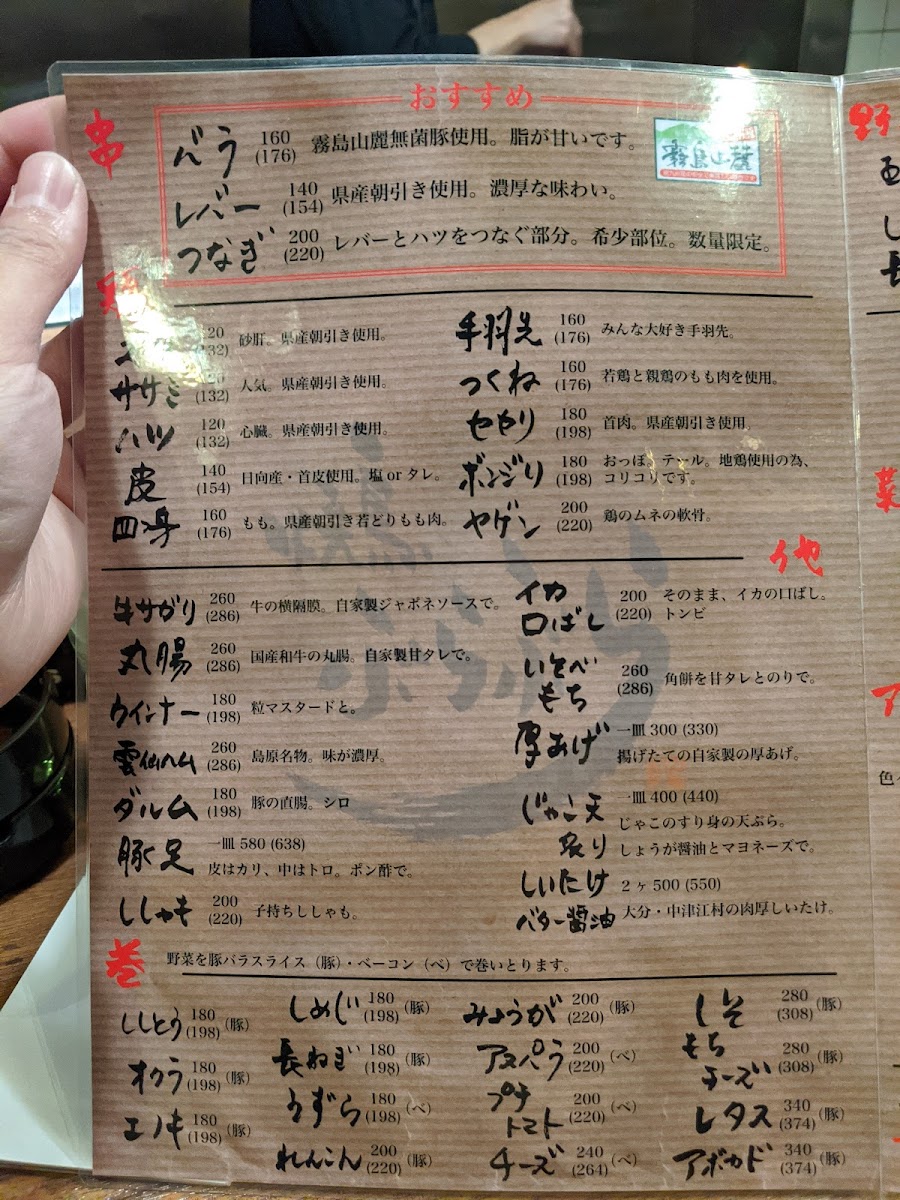 おすすめ
串
バラ 160 (176) 霧島山麗無菌豚使用。脂が甘いです。
霧島山麓
レバー 140 (154) 県産朝引き使用。濃厚な味わい。
つなぎ 200 (220) レバーとハツをつなぐ部分。希少部位。数量限定。
鶏
120 (132) 砂肝。県産朝引き使用。
ササミ 120 (132) 人気。県産朝引き使用。
ハツ 120 (132) 心臓。県産朝引き使用。
皮 140 (154) 日向産・首皮使用。塩 or タレ。
四つ身 160 (176) もも。県産朝引き若どりもも肉。
手羽先 160 (176) みんな大好き手羽先。
つくね 160 (176) 若鶏と親鶏のもも肉を使用。
セセリ 180 (198) 首肉。県産朝引き使用
ボンジリ 180 (198) おっぽ。テール。地鶏使用の為、
コリコリです。
ヤゲン 200 (220) 鶏のムネの軟骨。
他
牛サガリ 260 (286) 牛の横隔膜。自家製ジャポネソースで。
丸腸 260 (286) 国産和牛の丸腸。自家製甘タレで。
ウインナー 180 (198) 粒マスタードと。
雲仙ハム 260 (286) 島原名物。味が濃厚。
ダルム 180 (198) 豚の直腸。シロ
豚足 一皿 580 (638)
皮はカリ、中はトロ。ポン酢で。
ししゃも 200 (220) 子持ちししゃも。
イカ
口ばし 200 (220) そのまま、イカの口ばし。
トンビ
いそべ
もち 260 (286) 角餅を甘タレとのりで。
厚あげ 一皿 300 (330)
揚げたての自家製の厚あげ。
じゃこ天 一皿 400 (440)
じゃこのすり身の天ぷら。
炙り しょうが醤油とマヨネーズで。
しいたけ 2ヶ 500 (550)
バター醤油 大分・中津江村の肉厚しいたけ。
巻
野菜を豚バラスライス（豚）・ベーコン（ベ）で巻いとります。
ししとう 180 (198) （豚）
オクラ 180 (198) （豚）
エノキ 180 (198) （豚）
しめじ 180 (198) （豚）
長ねぎ 180 (198) （豚）
うずら 180 (198) （ベ）
れんこん 200 (220) （豚）
みょうが 200 (220) （豚）
アスパラ 200 (220) （ベ）
プチ
トマト 200 (220) （ベ）
チーズ 240 (264) （ベ）
しそ 280 (308) （豚）
もち
チーズ 280 (308) （豚）
レタス 340 (374) （豚）
アボカド 340 (374) （豚）
野
菜
長
ア
色